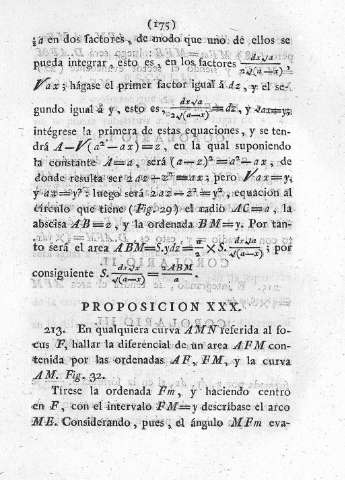 (175)
½a en dos factores, de modo que uno de ellos se
pueda integrar, esto es, en los factores dx√a / 2√(a−x),
√ax; hágase el primer factor igual á dz, y el se-
gundo igual á y, esto es, dx√a / 2√(a−x) = dz, y √ax=y;
intégrese la primera de estas equaciones, y se ten-
drá A−√(a²−ax)=z, en la qual suponiendo
la constante A=a, será (a−z)²=a²−ax, de
donde resulta ser 2az−z²=ax; pero √ax=y,
y ax=y²: luego será 2az−z²=y², equacion al
círculo que tiene (Fig. 29) el radio AC=a, la
abscisa AB=z, y la ordenada BM=y. Por tan-
to será el area ABM=S.ydz= a/2 × S. dx√x / √(a−x); por
consiguiente S. dx√x / √(a−x) = 2ABM / a.
PROPOSICION XXX.
213. En qualquiera curva AMN referida al fo-
cus F, hallar la diferencial de un area AFM con-
tenida por las ordenadas AF, FM, y la curva
AM. Fig. 32.
Tírese la ordenada Fm, y haciendo centro
en F, con el intervalo FM=y descríbase el arco
ME. Considerando, pues, el ángulo MFm eva-